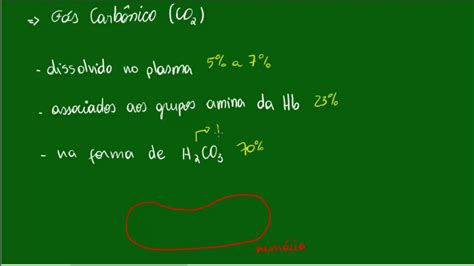 ⇒ Gás Carbônico (CO₂)
- dissolvido no plasma 5% a 7%
- associados aos grupos amina da Hb 23%
- na forma de H₂CO₃ 70%
hemácia